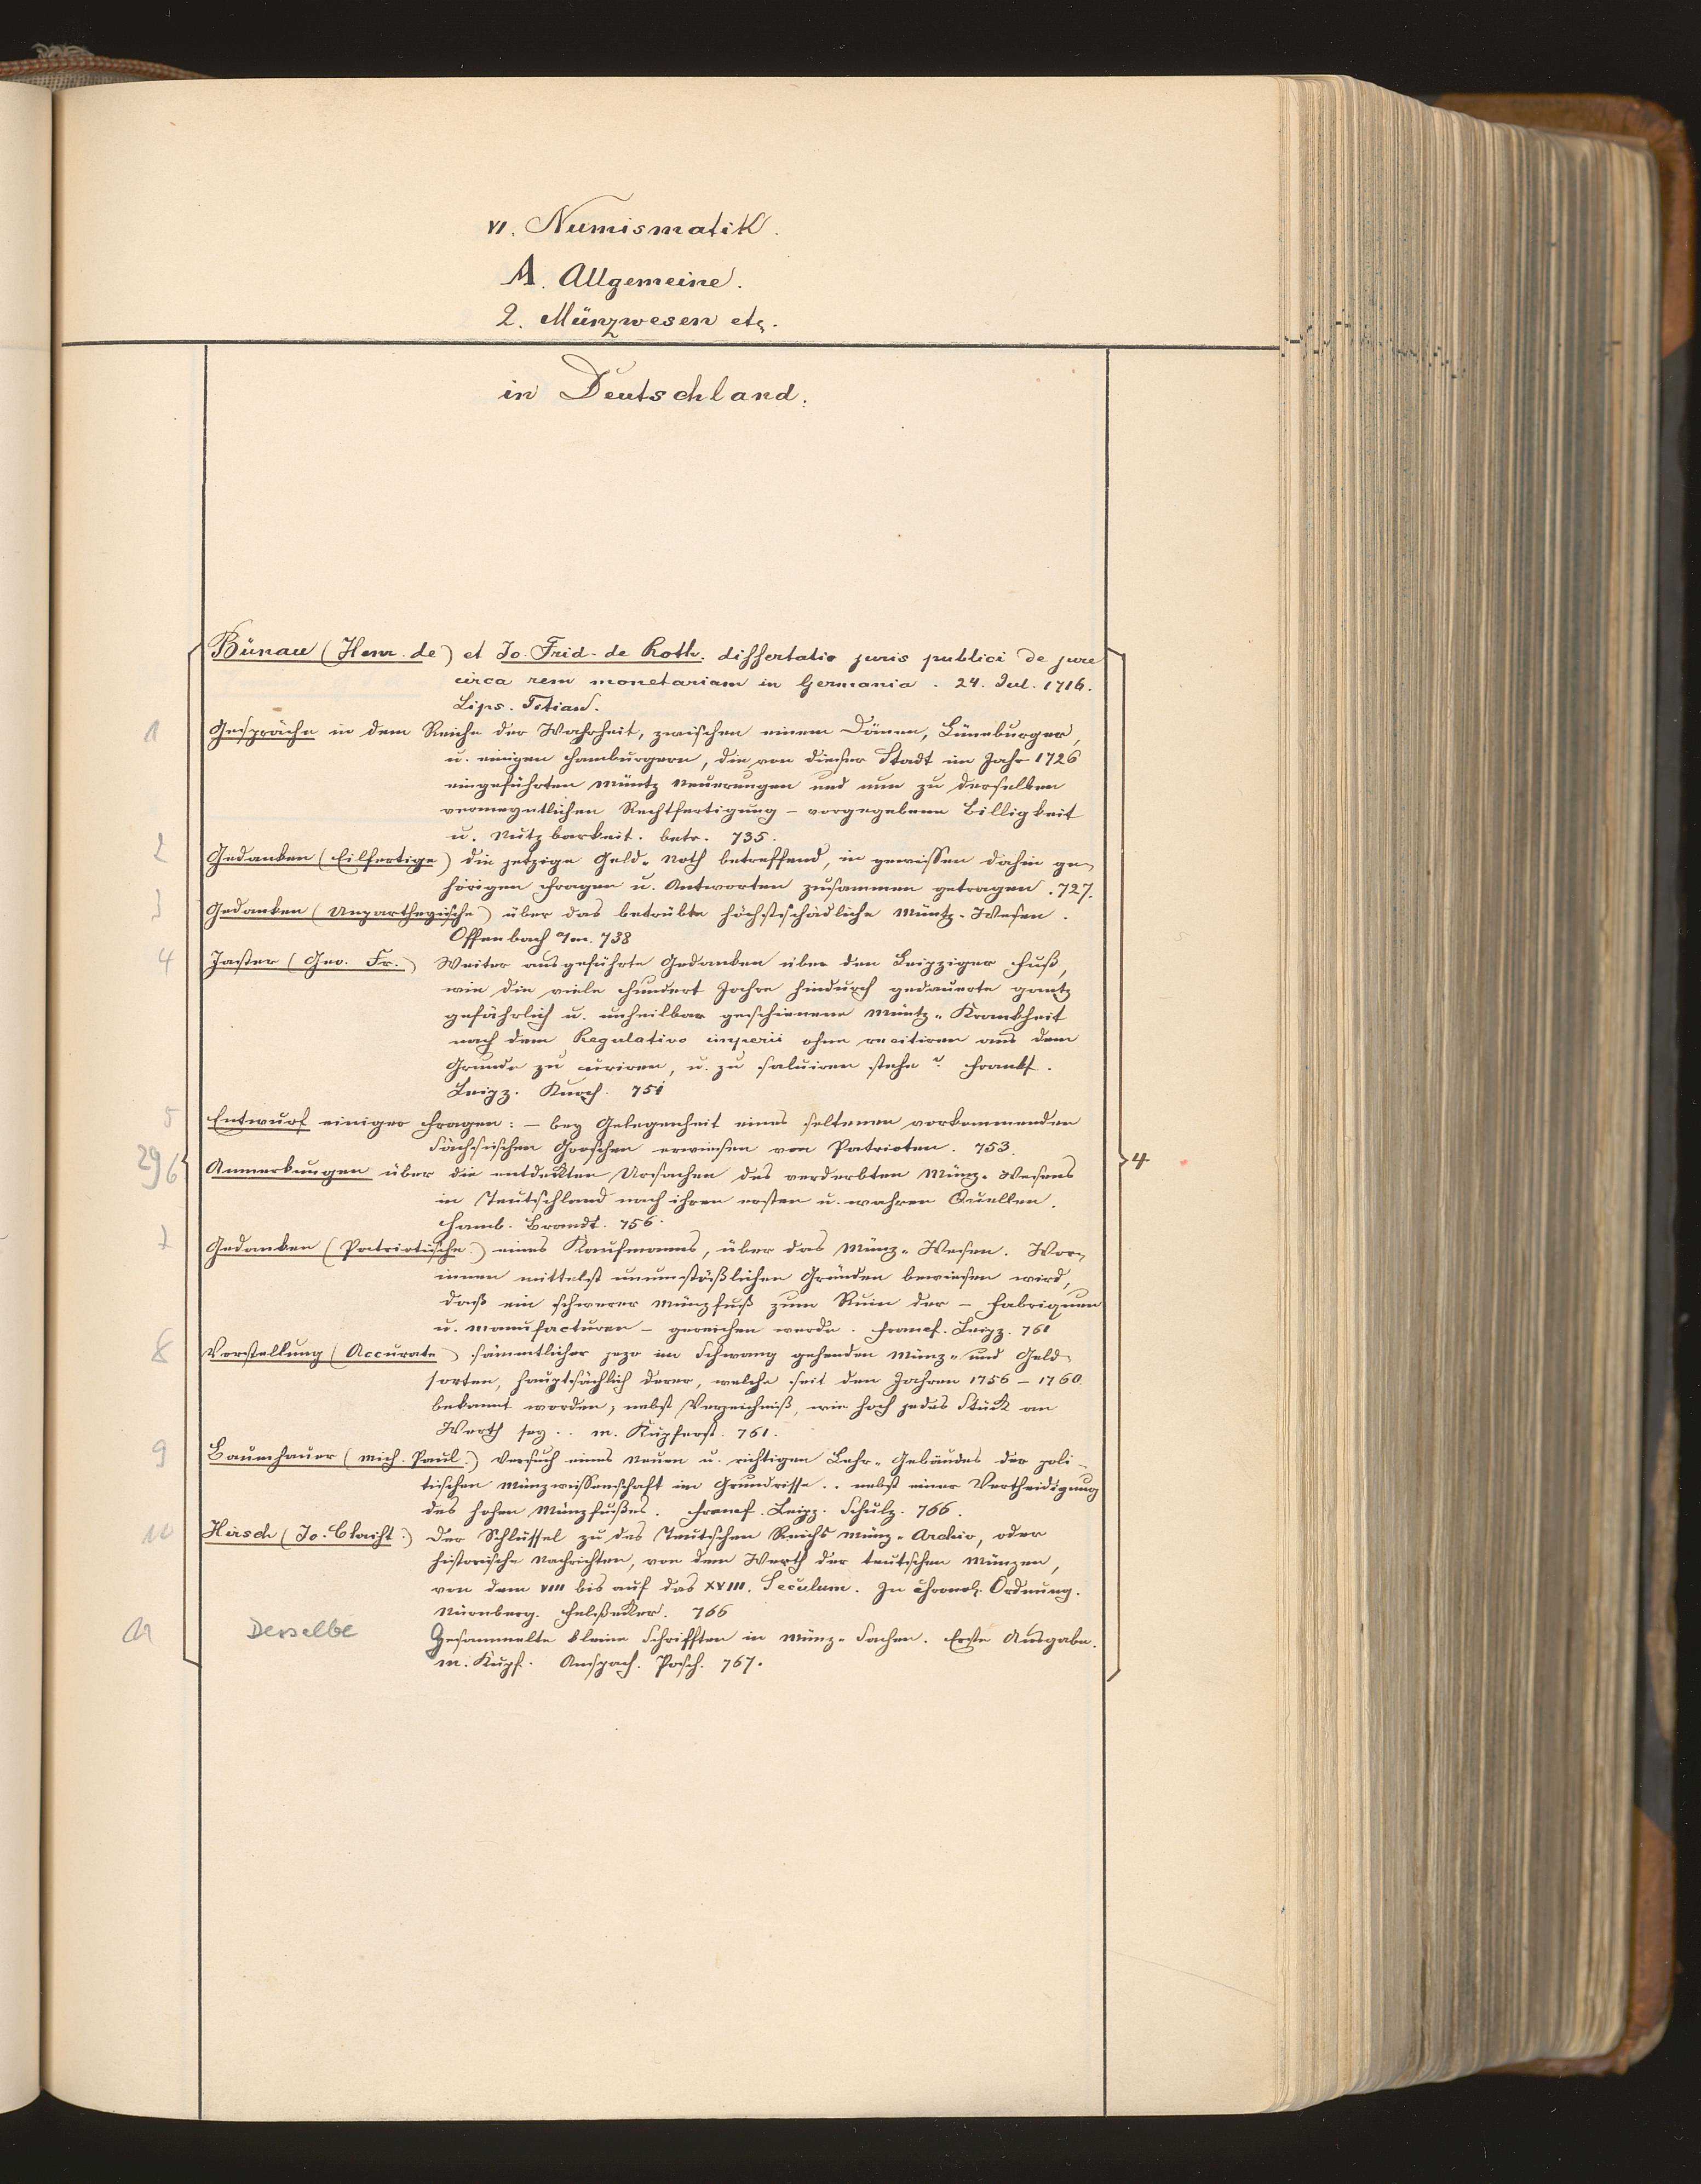 VI. Numismatik.
A. Allgemeine.
2. Münzwesen etc.
in Deutschland.
Bünau (Henr. de) et Jo. Frid. de Roth. dissertatio juris publici de jure
circa rem monetariam in Germania. 24. Jul. 1716.
Lips. Titian.
1 Gespräche in dem Reiche der Wahrheit, zwischen einem Dänen, Lüneburger,
u. einigen Hamburgern, die von dieser Stadt im Jahr 1726
eingeführten Müntz Neuerungen und nun zu derselben
vermeyntlichen Rechtfertigung – vorgegebene Billigkeit
u. Nutzbarkeit. betr. 735.
2 Gedanken (Eilfertige) die jetzige Geld-Noth betreffend, in gewissen dahin ge-
hörigen Fragen u. Antworten zusammen getragen. 727.
3 Gedanken (Unpartheyische) über das betrübte höchstschädliche Müntz-Wesen.
Offenbach a/m. 738
4 Jaster (Geo. Fr.) Weiter ausgeführte Gedanken über den Leipziger Fuß,
wie die viele hundert Jahre hindurch gedauerte gantz
gefährlich u. unheilbar geschienene Müntz-Krankheit
nach dem Regulativo imperii ohne recitiren aus dem
Grunde zu curiren, u. zu salviren stehe? Frankf.
Leipz. Knoch. 751
5 Entwurf einiger Fragen: – bey Gelegenheit eines seltenen vorkommenden
Sächsischen Groschen erwiesen von Patrioten. 753.
29 6 Anmerkungen über die entdekten Ursachen des verderbten Münz-Wesens
in Teutschland nach ihren ersten u. wahren Quellen.
Hamb. Brandt. 756.
7 Gedanken (Patriotische) eines Kaufmanns, über das Münz-Wesen. Wor-
innen mittelst unumstößlichen Gründen bewiesen wird,
daß ein schwerer Münzfuß zum Ruin der – Fabriquen
u. Manufacturen – gereichen werde. Francf. Leipz. 761
8 Vorstellung (Accurate) sämmtlicher jezo im Schwang gehenden Münz- und Geld-
sorten, hauptsächlich derer, welche seit den Jahren 1756 – 1760.
bekannt worden; nebst Verzeichniß, wie hoch jedes Stück an
Werth sey .. m. Kupferst. 761.
9 Baumhauer (Mich. Paul.) Versuch eines neuen u. richtigen Lehr-Gebäudes der poli-
tischen Münzwissenschaft im Grundrisse .. nebst einer Vertheidigung
des hohen Münzfußes. Francf. Leipz. Schulz. 766.
10 Hirsch (Jo. Chrispht.) Der Schlüssel zu des Teutschen Reichs Münz-Archiv, oder
historische Nachrichten, von dem Werth der teutschen Münzen,
von dem VIII bis auf das XVIII. Seculum. In chronol. Ordnung.
Nürnberg. Felßeker. 766
11 Derselbe Gesammelte kleine Schrifften in Münz-Sachen. Erste Ausgabe.
m. Kupf. Anspach. Posch. 767.
4